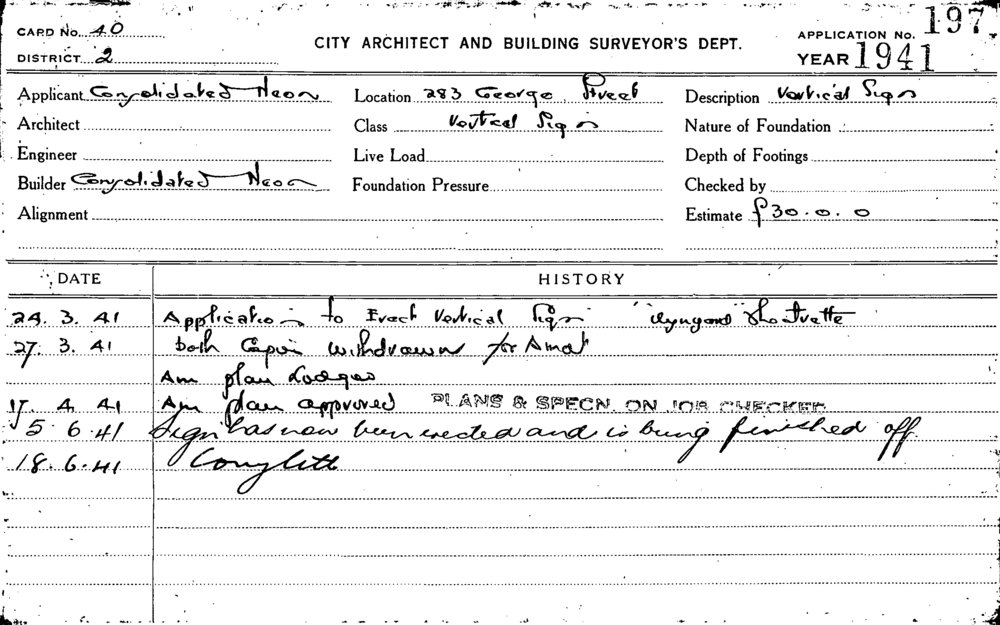 CARD No. 40
DISTRICT 2
CITY ARCHITECT AND BUILDING SURVEYOR'S DEPT.
APPLICATION No. 197
YEAR 1941
Applicant Consolidated Neon
Location 283 George Street
Description Vertical Sign
Architect
Class Vertical Sign
Nature of Foundation
Engineer
Live Load
Depth of Footings
Builder Consolidated Neon
Foundation Pressure
Checked by
Alignment
Estimate £30.0.0
DATE HISTORY
24. 3. 41 Application to Erect Vertical Sign "Wynyard Theatrette"
27. 3. 41 both Copies withdrawn for Amdt
Am plan Lodged
17. 4. 41 Am plan approved PLANS & SPECN. ON JOB CHECKED
5. 6. 41 Sign has now been erected and is being finished off
18. 6. 41 Complete